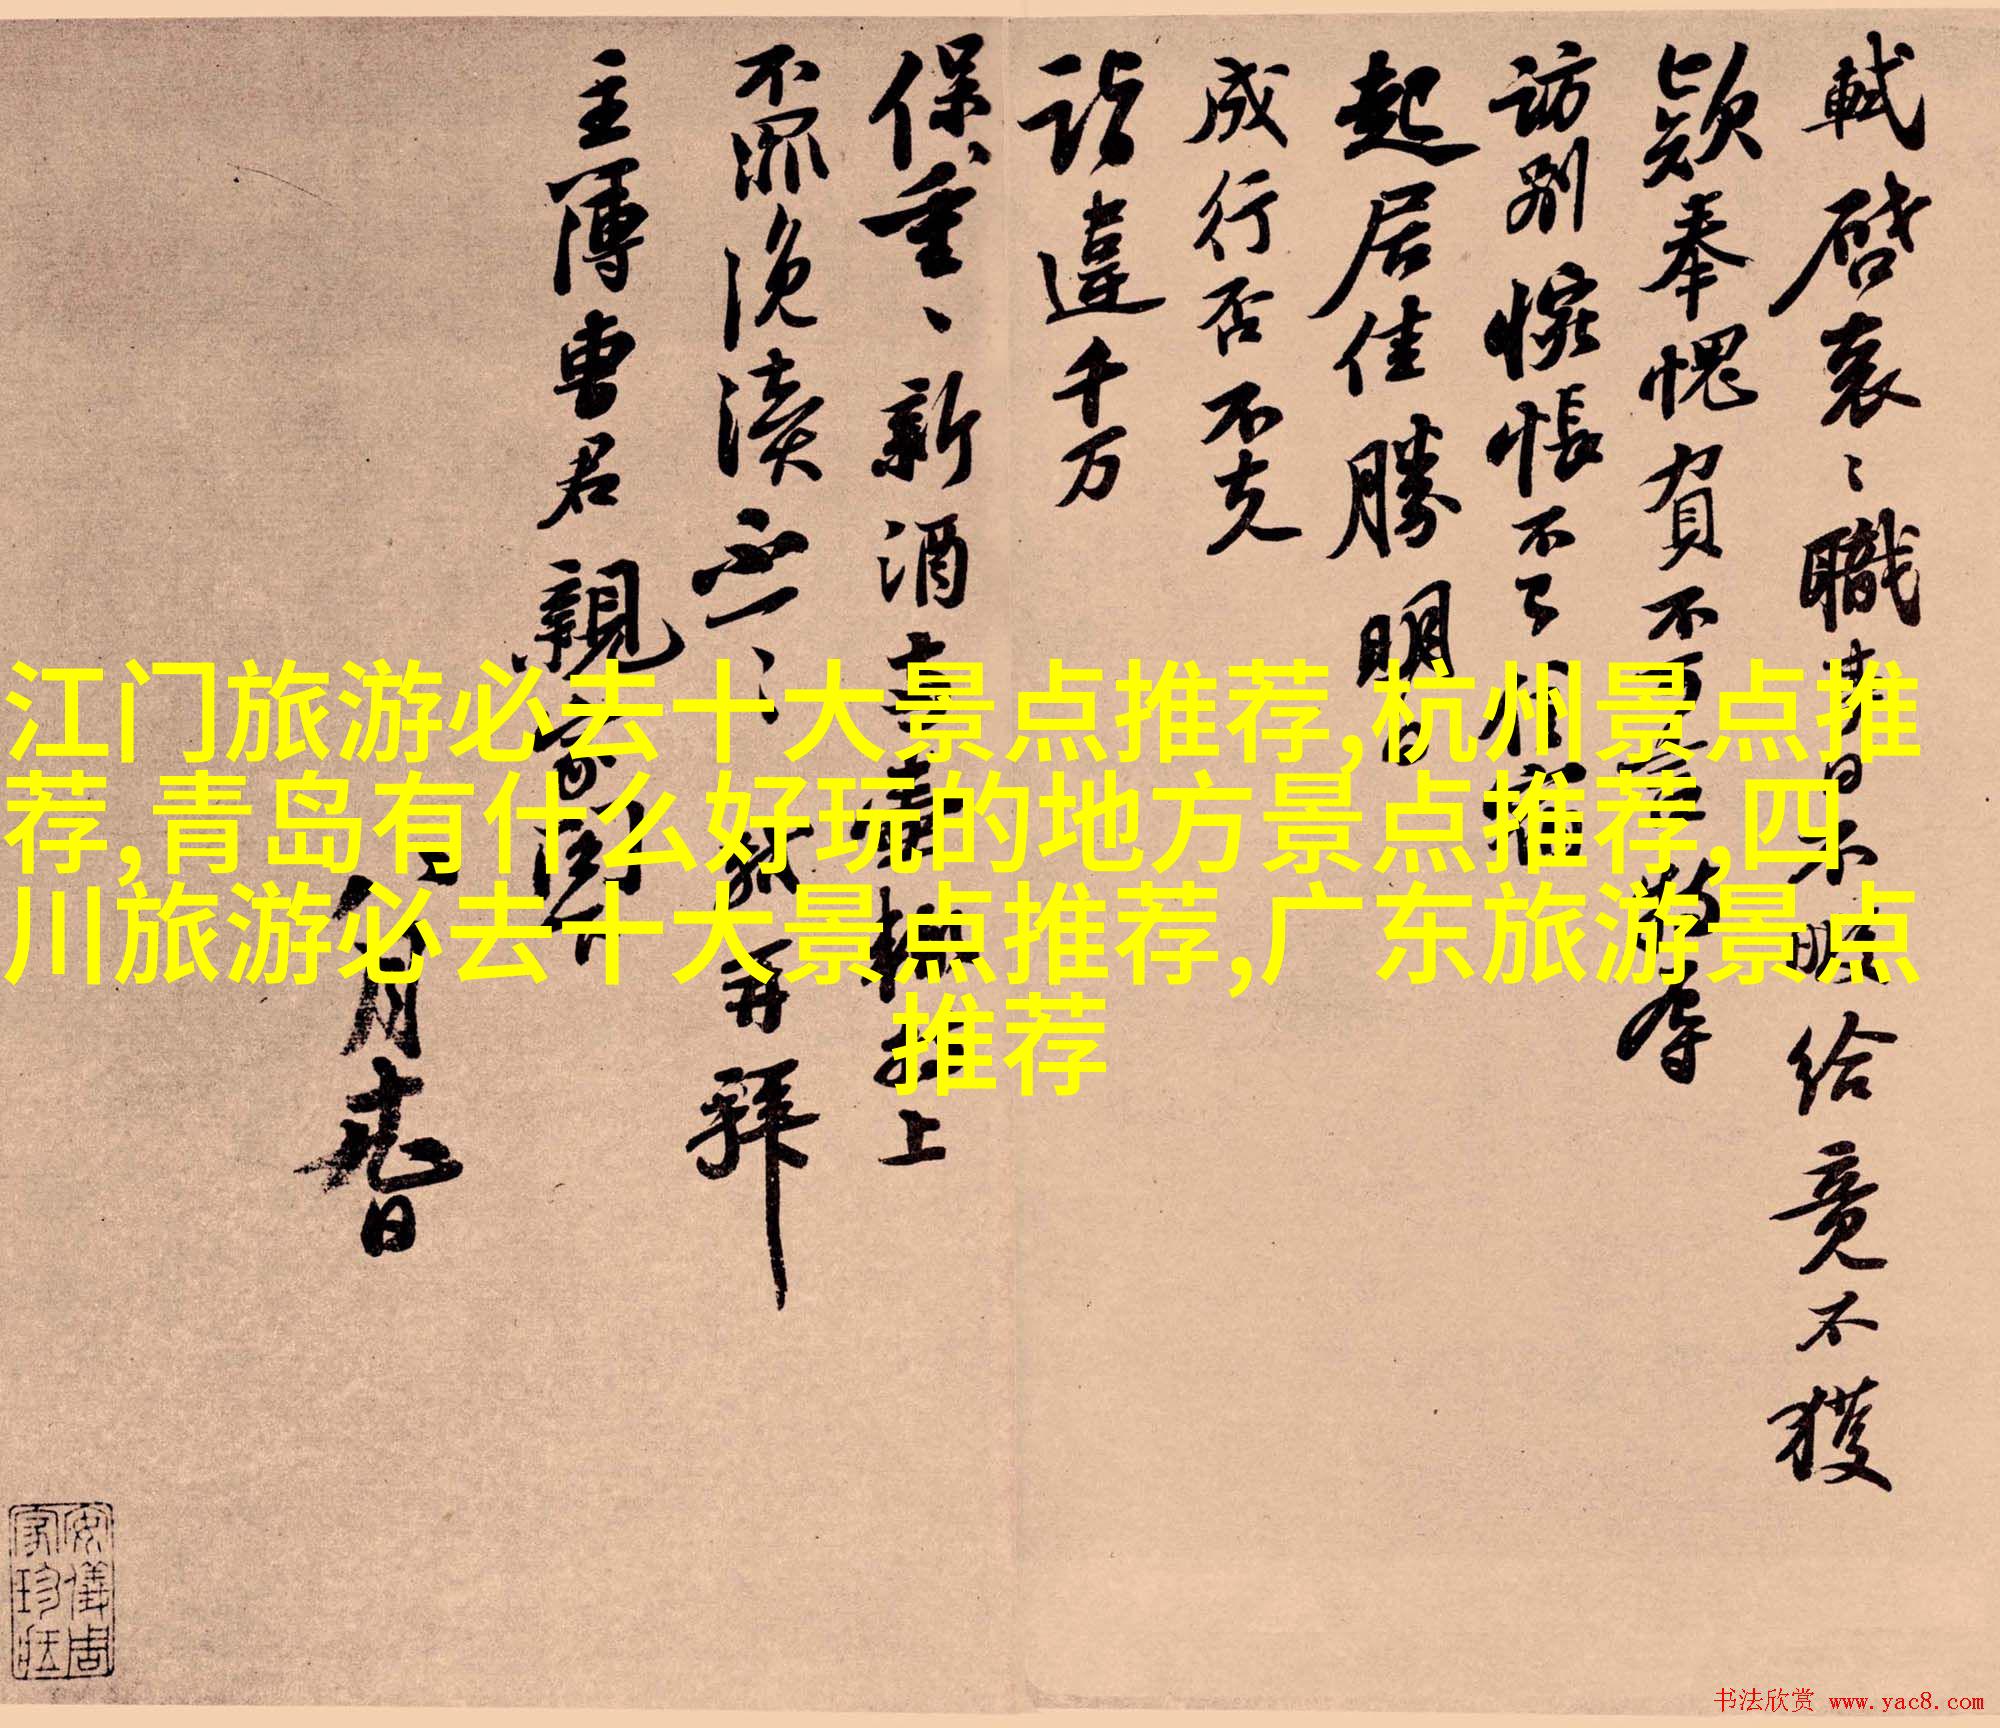 軾啓袁〻職事日不暇給竟不獲
款奉愧負不可
訪別惋悵不已
起居佳勝明日
成行否不克
詣違千万
保重〻新酒
上
不罪浼瀆不一〻
再拜
主簿曹君親家
月
日
江门旅游必去十大景点推荐,杭州景点推
荐,青岛有什么好玩的地方景点推荐,四
川旅游必去十大景点推荐,广东旅游景点
推荐
安儀周
家珍藏
书法欣赏 www.yac8.com